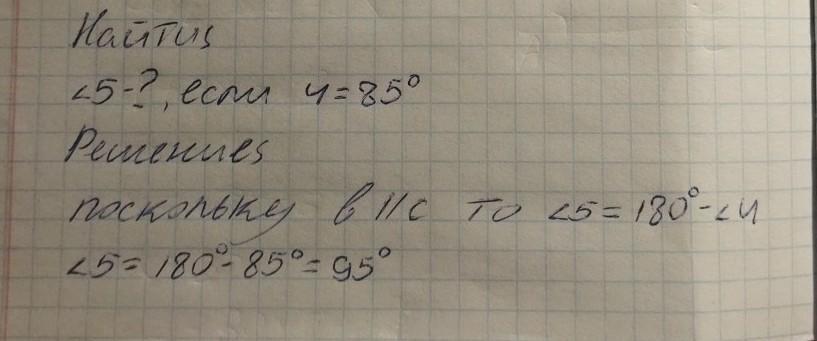 Найти:
∠5-?, если 4=85°
Решение:
поскольку в || с то ∠5=180°-∠4
∠5=180°-85°=95°